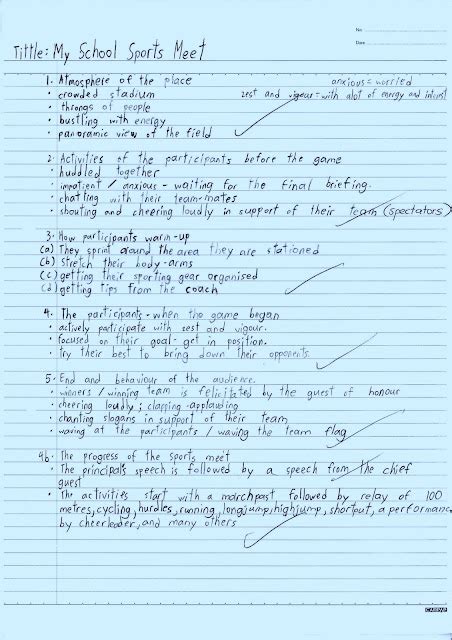 No.
Date
Tittle: My School Sports Meet
1. Atmosphere of the place
anxious = worried
• crowded stadium
zest and vigeur = with alot of energy and interest
• throngs of people
• bustling with energy
• panoramic view of the field
2. Activities of the participants before the game
• huddled together
• impatient / anxious - waiting for the final briefing.
• chatting with their team-mates
• shouting and cheering loudly in support of their team (spectators)
3. How participants warm-up
(a) They sprint around the area they are stationed
(b) stretch their body-arms
(c) getting their sporting gear organised
(d) getting tips from the coach
4. The participants - when the game began
• actively participate with zest and vigour.
• focused on their goal - get in position.
• try their best to bring down their opponents.
5. End and behaviour of the audience.
• winners / winning team is felicitated by the guest of honour
• cheering loudly; clapping - applauding
• chanting slogans in support of their team
• waving at the participants / waving the team flag
4b. The progress of the sports meet
• The principal's speech is followed by a speech from the chief
guest
• The activities start with a marchpast, followed by relay of 100
metres, cycling, hurdles, running, longjump, highjump, shortput, a performance
by cheerleader, and many others
CAMPAP